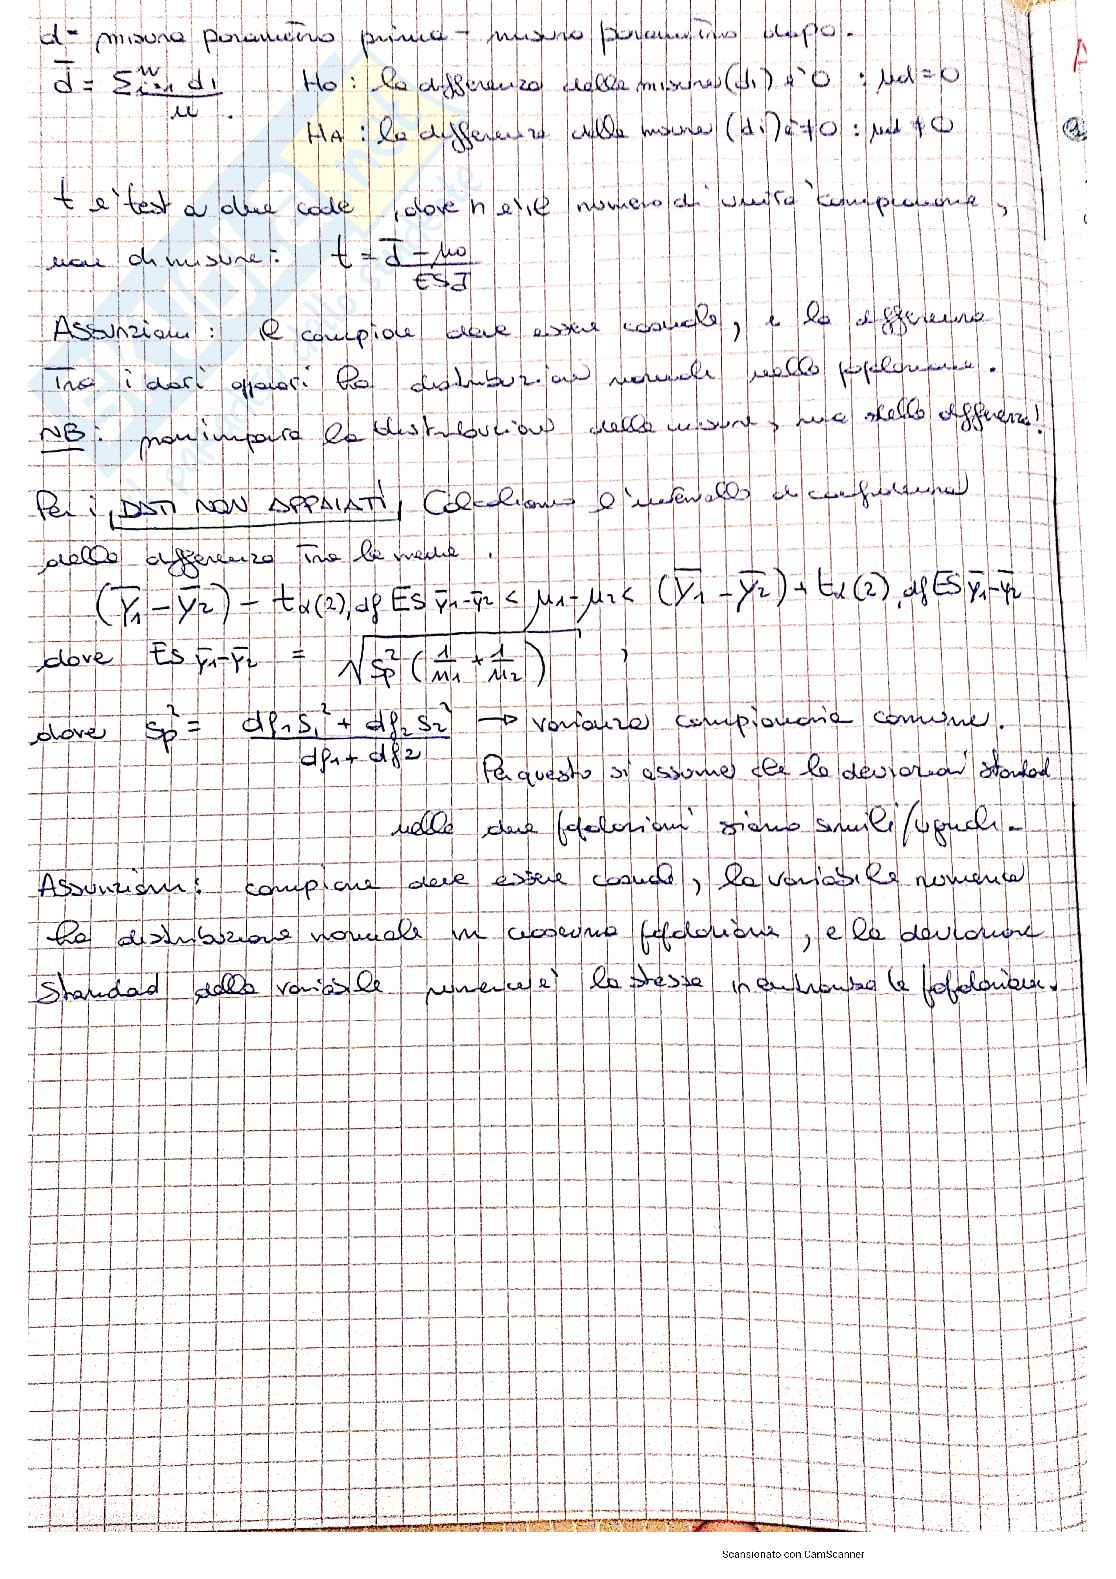 d = misura parametro prima - misura parametro dopo.
d̄ = Σ^n_{i=1} di / n . H0 : la differenza delle misure (di) è 0 : μd = 0
HA : la differenza delle misure (di) è ≠ 0 : μd ≠ 0
t è test a due code, dove n è il numero di unità campionarie,
non di misure: t = d̄ - μ0 / ES d̄
Assunzioni: il campione deve essere casuale, e la differenza
tra i dati appaiati ha distribuzione normale nella popolazione.
NB: non importa la distribuzione delle misure, ma della differenza!
Per i DATI NON APPAIATI, calcoliamo l'intervallo di confidenza
della differenza tra le medie.
(Ȳ1 - Ȳ2) - tα(2), df ES ȳ1-ȳ2 < μ1 - μ2 < (Ȳ1 - Ȳ2) + tα(2), df ES ȳ1-ȳ2
dove ES ȳ1-ȳ2 = √ sp² (1/n1 + 1/n2) ,
dove sp² = df1 s1² + df2 s2² / df1 + df2 → varianza campionaria comune.
Per questo si assume che la deviazioni standard
nelle due popolazioni siano simili/uguali.
Assunzioni: campione deve essere casuale, la variabile numerica
ha distribuzione normale in ciascuna popolazione, e la deviazione
standard della variabile numerica è la stessa in entrambe le popolazioni.
Scansionato con CamScanner